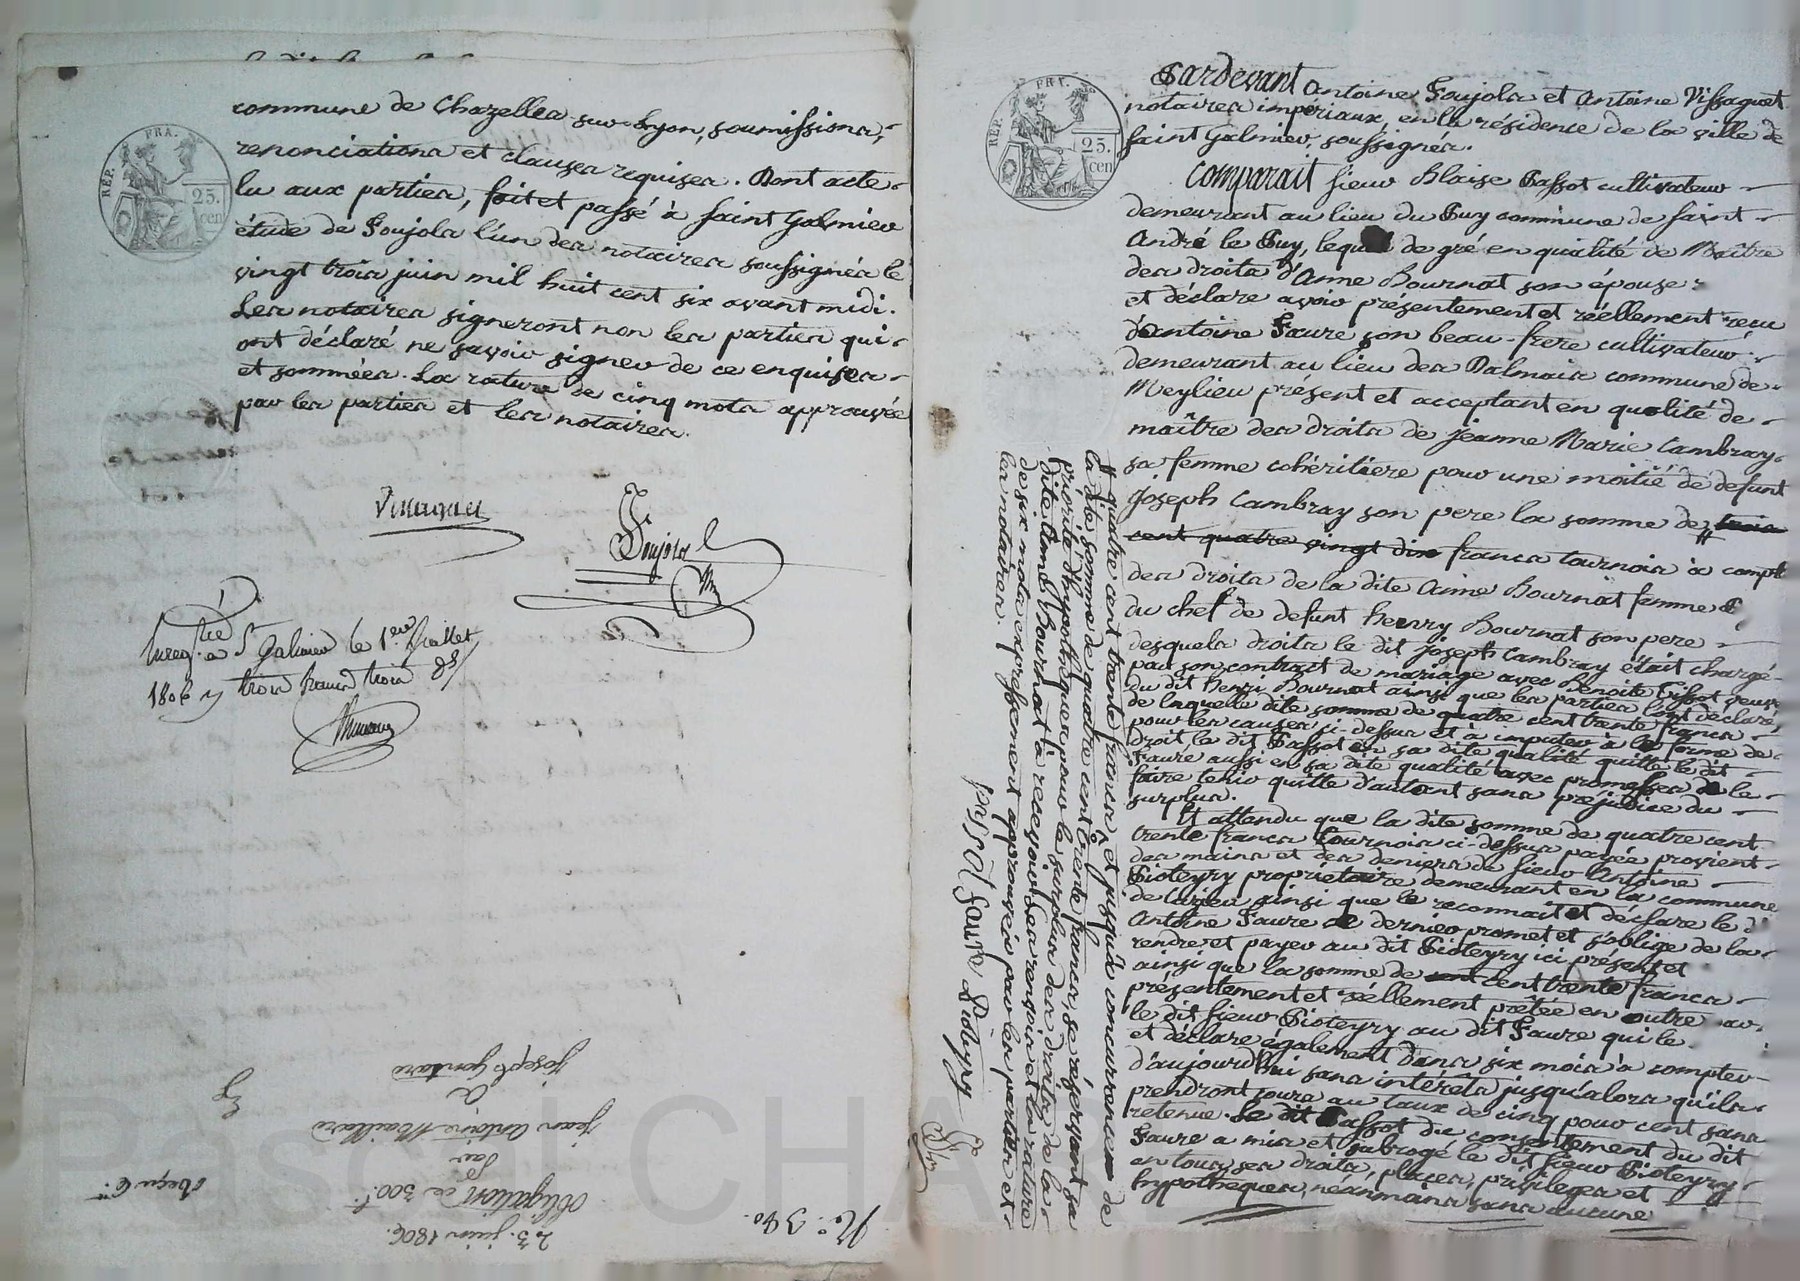 commune de Chazelles sur Lyon, soumissions,
renonciations et clauses requises. Dont acte
lu aux parties, fait et passé à Saint Galmier
étude de Poujola l'un des notaires soussignés le
vingt trois juin mil huit cent six avant midi.
Les notaires signeront non les parties qui
ont déclaré ne savoir signer de ce enquises
et sommées. La rature de cinq mots approuvée
par les parties et les notaires.
Enreg.tré à St Galmier le 1.er Juillet
1806 trois francs trois
23. juin 1806.
Obligation de 300 f.
Par
jean Antoine Maillard
à
joseph
N.° 340.
REP. FRA.
25. cen
REP. FRA.
25. cen
Pardevant Antoine Poujola et Antoine Vissaguet
notaires impériaux, en la résidence de la ville de
Saint Galmier, soussignés.
Comparait sieur Blaise Passot cultivateur
demeurant au lieu du Puy commune de saint
André le Puy, lequel de gré en qualité de Maître
des droits d'Anne Bournat son épouse
et déclare avoir présentement et réellement reçu
d'antoine Faure son beau-frere cultivateur
demeurant au lieu des Palmais commune de
Meylieu présent et acceptant en qualité de
maître des droits de jeanne Marie Cambray
sa femme cohéritiere pour une moitié de defunt
joseph Cambray son pere la somme de trois
cent quatre vingt dix francs tournois à compte
des droits de la dite Anne Bournat femme
du chef de defunt henry Bournat son pere
desquels droits le dit joseph Cambray était chargé
par son contrat de mariage avec Benoite Tissot veuve
du dit henri Bournat ainsi que les parties l'ont déclaré,
de laquelle dite somme de quatre cent trente francs
pour les causes ci-dessus et à imputer à la forme de
droit le dit Passot en sa dite qualité quitte le dit
Faure aussi en sa dite qualité avec promesses de le
faire tenir quitte d'autant sans préjudice du
surplus.
Et attendu que la dite somme de quatre cent
trente francs tournois ci-dessus payée provient
des mains et des deniers de sieur Antoine
Pioteyry propriétaire demeurant en la commune
de ainsi que le reconnait et déclare le d
Antoine Faure ce dernier promet et s'oblige de la
rendre et payer au dit Pioteyry ici présent et
ainsi que la somme de cent trente francs
présentement et réellement prêtée en outre
le dit sieur Pioteyry au dit Faure qui le
et déclare également dans six mois à compter
d'aujourd'hui sans intérêts jusqu'alors qu'ils
prendront au taux de cinq pour cent sans
retenue. Le dit Passot du consentement du dit
Faure a mis et subrogé le dit sieur Pioteyry
en tous ses droits, places, privileges et
hypotheques, néanmoins sans aucune
quatre cent trente francs et jusqu'à concurrence de
la dite somme de quatre cent trente francs, se réservant sa
priorité d'hypotheques pour le surplus des droits de la
dite Anne Bournat à recevoir. Les renvois et la rature
de six mots expressément approuvés par les parties et
les notaires.
passot faure Pioteyry